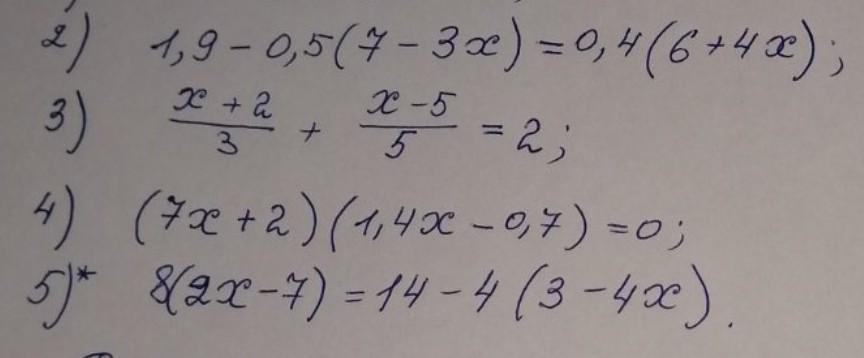 2) 1,9 - 0,5(7 - 3x) = 0,4(6 + 4x);
3) \frac{x + 2}{3} + \frac{x - 5}{5} = 2;
4) (7x + 2)(1,4x - 0,7) = 0;
5)* 8(2x - 7) = 14 - 4(3 - 4x).